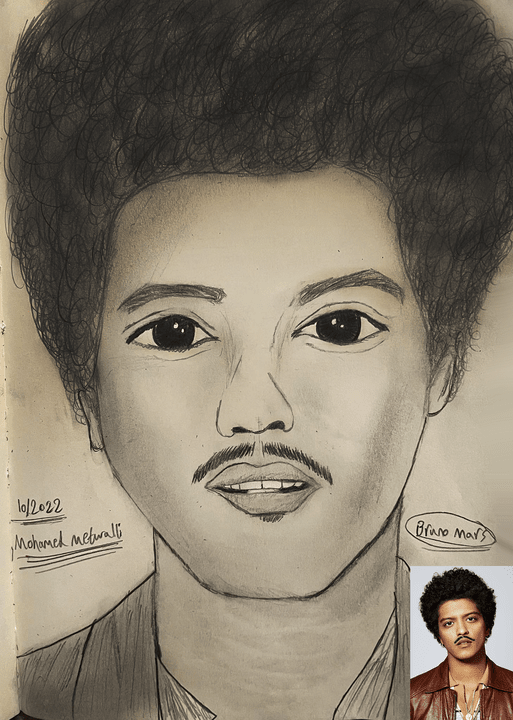 10/2022
Mohamed metwalli
Bruno Mars